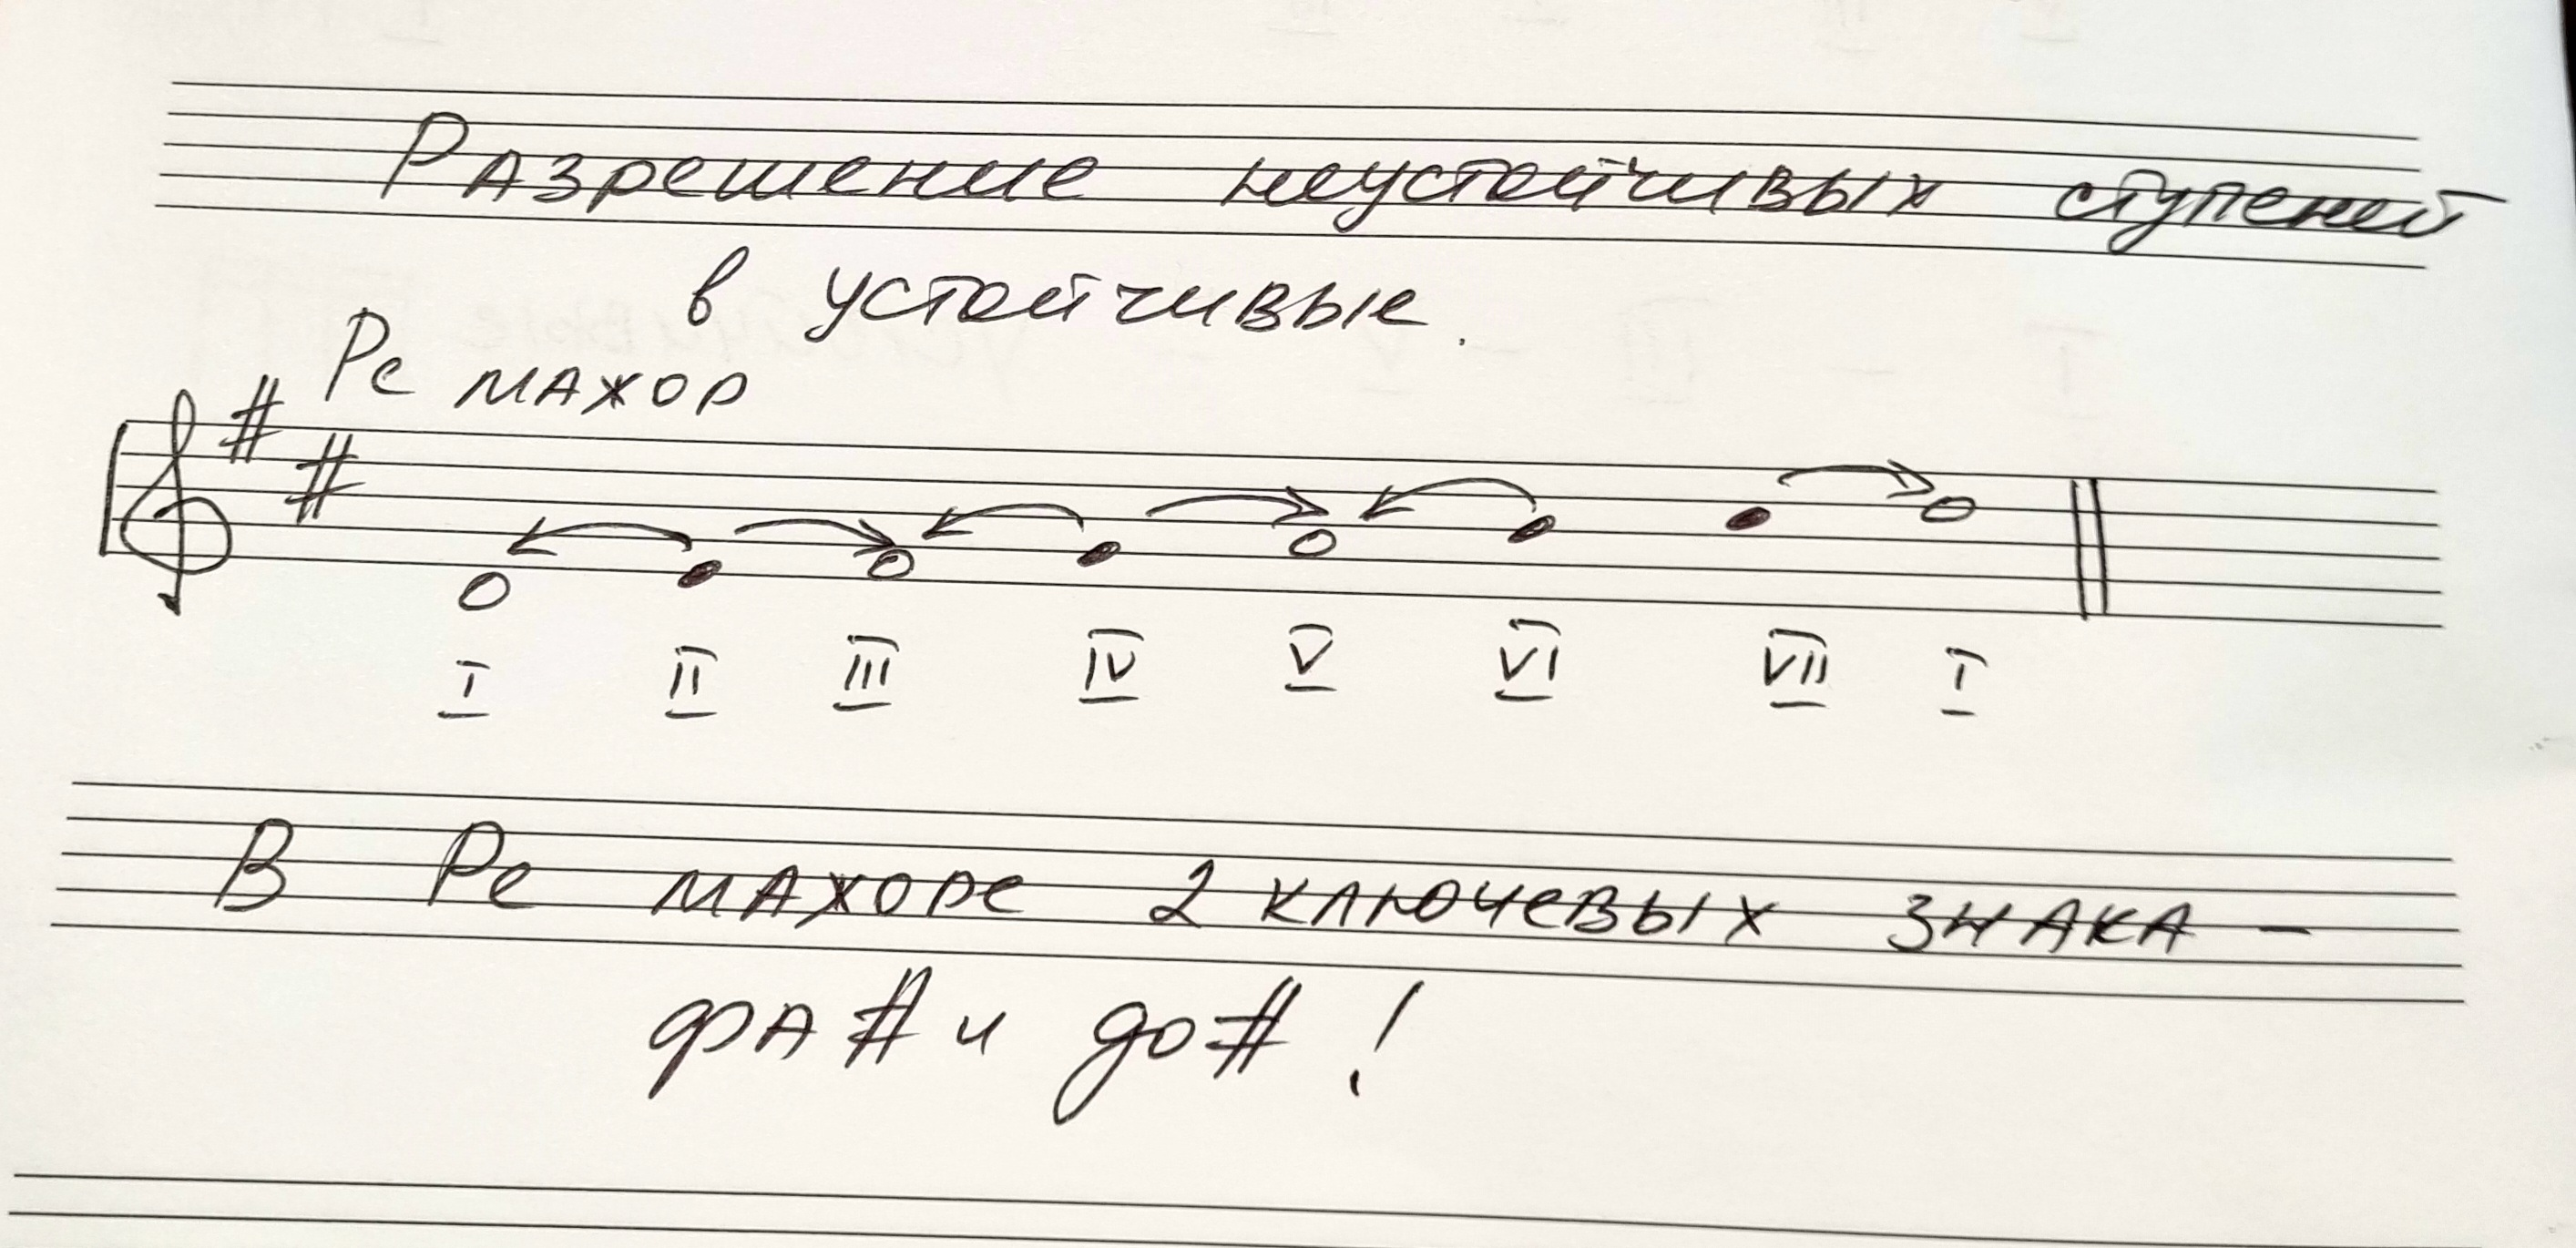 Разрешение неустойчивых ступеней
в устойчивые.
Ре мажор
I II III IV V VI VII I
В Ре мажоре 2 ключевых знака –
фа # и до # !